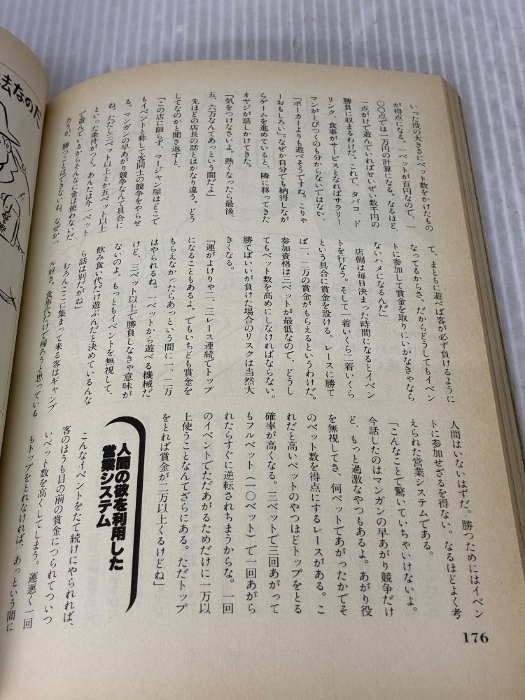 いった役の大きさにベット数をかけたもの
が得点になる。一ベットが百円なので、一
〇〇点では一万円の計算になる。なるほど
一点がけで遊んでいればせいぜい数千円の
勝負に収まるわけだ。これで、タバコ、ド
リンク、食事がサービスとなればサラリー
マンがとびつくのも分からないではない。
「ポーカーよりも遊べそうですね。こりゃ
ーおもしろい。なぜか自分でも納得しなが
らゲームを進めていると、隣に移ってきた
オヤジが話しかけてきた。
「気をつけなさいよ。熱くなったら最後、
五、六万なんてあっという間だよ」
先ほどの店長の話とはかなり違う。どう
してなのかと聞き返すと、
「この店に限らず、マージャン屋はどこで
もイベントを称して客同士の競争をやらせ
る。マンガンの早あがり競争なんて具合に
ね。ただし三ベット以上とか五ベット以上
といった条件がつく。あんたみたく一ベット
て、まともに遊べば客が必ず負けるように
なってるからさ。だからどうしてもイベン
トに参加して賞金を取りにいかなきゃなら
ないハメになるんだ」
店側は毎日決まった時間になるとイベン
トを行なう。そして一着いくら二着いくら
という具合に賞金を設ける。レースに勝て
ば一、二万の賞金がもらえるというわけだ。
参加資格は三ベットが最低なので、どうし
てもベット数を高めにしなければならない。
勝てばいいが負けた場合のリスクは当然大
きくなる。
「運がよけりゃ二、三レース連続でトップ
になることもあるよ。でもいちども賞金を
もらえなかったらあっという間に一、二万
はやられるね。一ベットから遊べる機械だ
けど、三ベット以上で勝負しなきゃ意味が
ないのよ。もっともイベントを無視して、
飲み食い代だけ遊ぶんだと決めているんな
ら話は別だがね」
むろんここに集まって来る客はギャンブ
ル好き。食事代だけで帰ろうと思っている
人間はいないはずだ。勝つためにはイベン
トに参加せざるを得ない。なるほどよく考
えられた営業システムである。
「こんなことで驚いていちゃいけないよ。
今話したのはマンガンの早あがり競争だけ
ど、もっと過激なやつもあるよ。あがり役
を無視してさ、何ベットであがったかでそ
のベット数を得点にするレースがある。こ
れだと高いベットのやつほどトップをとる
確率が高くなる。三ベットで三回あがって
もフルベット（一〇ベット）で一回あがら
れたらすぐに逆転されちまうからな。一回
のイベントでただあがるためだけに一万以
上使うことなんてざらにある。ただトップ
をとれば賞金が二万以上くるけどね」
人間の欲を利用した
営業システム
こんなイベントをたて続けにやられれば、
客のほうも目の前の賞金につられてついつ
いベット数を高くしてしまう。運悪く一回
もトップをとれなければ、あっという間に
176